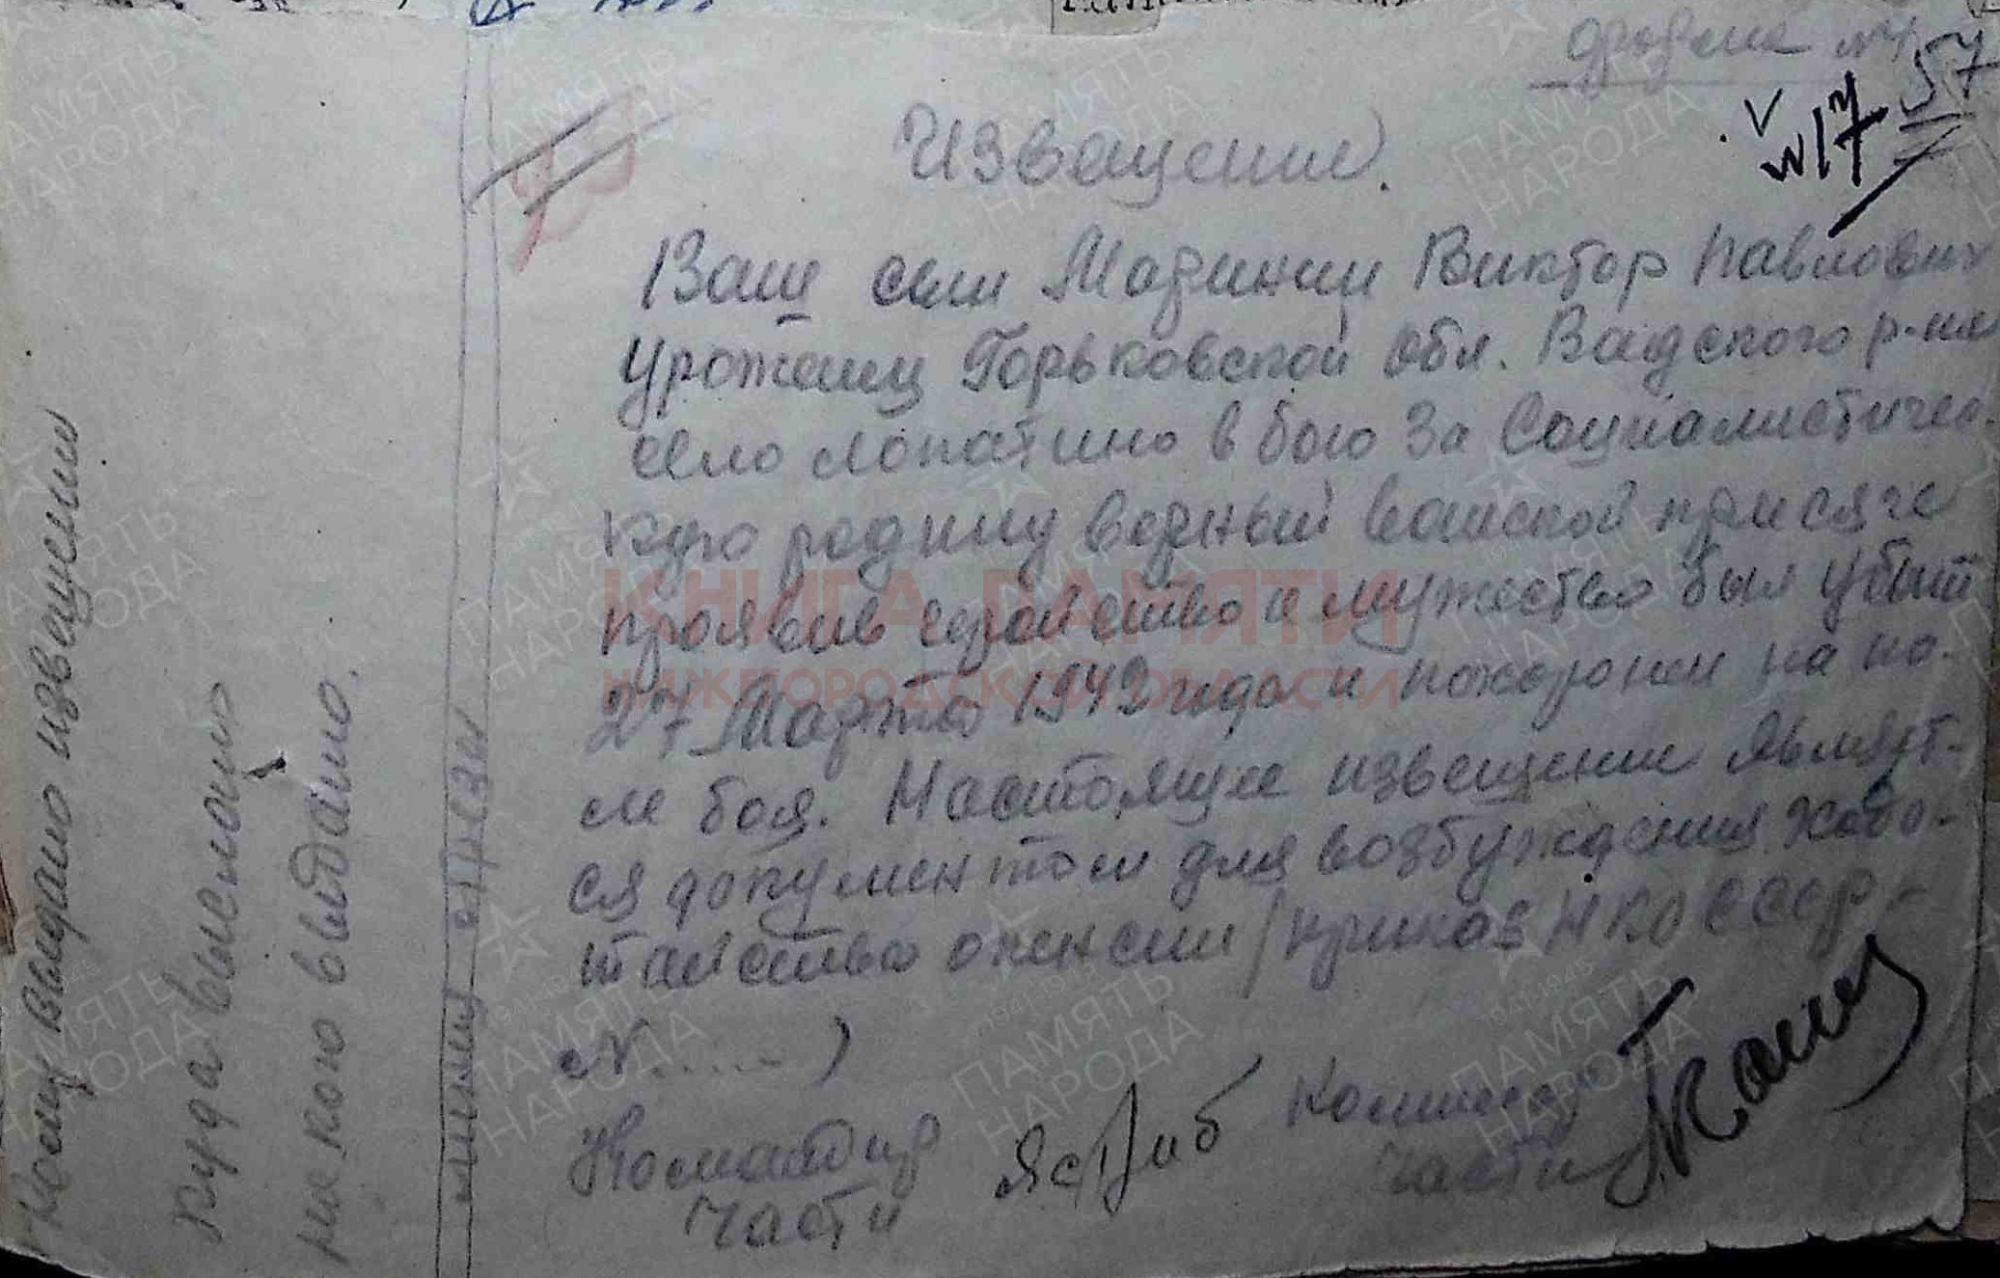 форма №4
57
№17
Извещение.
Ваш сын Маринин Виктор Павлович
Уроженец Горьковской обл. Вадского р-на
село Лопатино в бою За Социалистичес-
кую родину верный воинской присяге
проявив геройство и мужество был убит
27 Марта 1942 года и похоронен на по-
ле боя. Настоящее извещение являет-
ся документом для возбуждения хода-
тайства о пенсии (приказ НКО СССР -
N......)
Командир
части
Ястриб
Комиссар
части
Кому выдано извещении
Куда выслано
на кого выдано.
линия отреза
КНИГА ПАМЯТИ
НИЖЕГОРОДСКОЙ ОБЛАСТИ
ПАМЯТЬ
НАРОДА
1941-1945